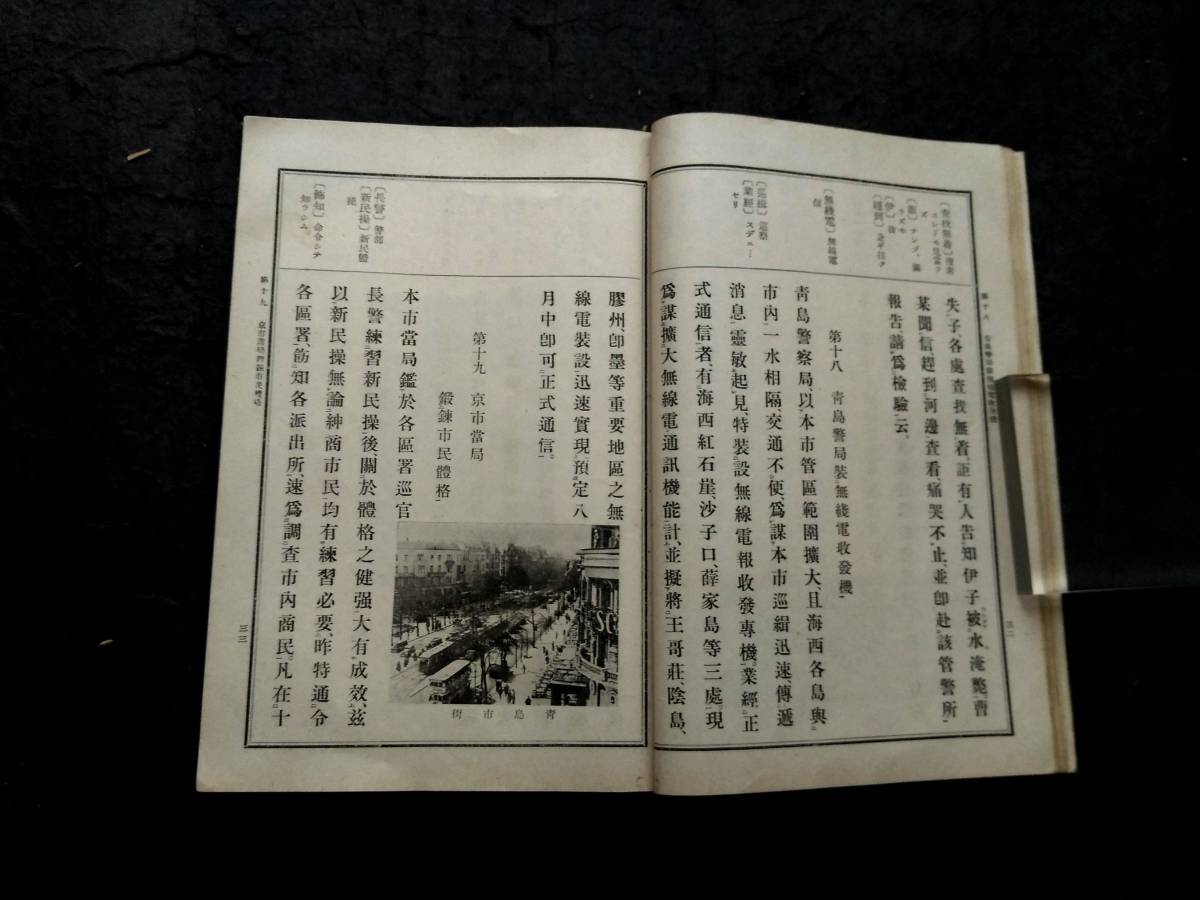 失、子、各處查找無着、詎有人告知伊子被水淹斃、曹
某聞信、趕到河邊查看、痛哭不止、並卽赴該管警所
報吿、請爲檢驗云。
第十八 靑島警局裝無綫電收發機
靑島警察局、以本市管區範圍擴大、且海西各島與
市內一水相隔、交通不便、爲謀本市巡緝迅速、傳遞
消息靈敏起見、特裝設無線電報收發專機、業經正
式通信者、有海西紅石崖、沙子口、薛家島等三處、現
爲謀擴大無線電通訊機能計、並擬將王哥莊、陰島、
〔無綫電〕無線電信
〔巡緝〕巡察
〔業經〕スデニ…セリ
膠州、卽墨等重要地區之無
線電裝設、迅速實現、預定八
月中卽可正式通信。
第十九 京市當局
鍛鍊市民體格
本市當局、鑑於各區署巡官
長警練習新民操後、關於體格之健强、大有成效、茲
以新民操無論紳商市民、均有練習必要、昨特通令
各區署、飭知各派出所、速爲調查市內商民、凡在十
〔長警〕警部
〔新民操〕新民體操
〔飭知〕命令シテ知ラシム。
靑島市街
第十九
三三